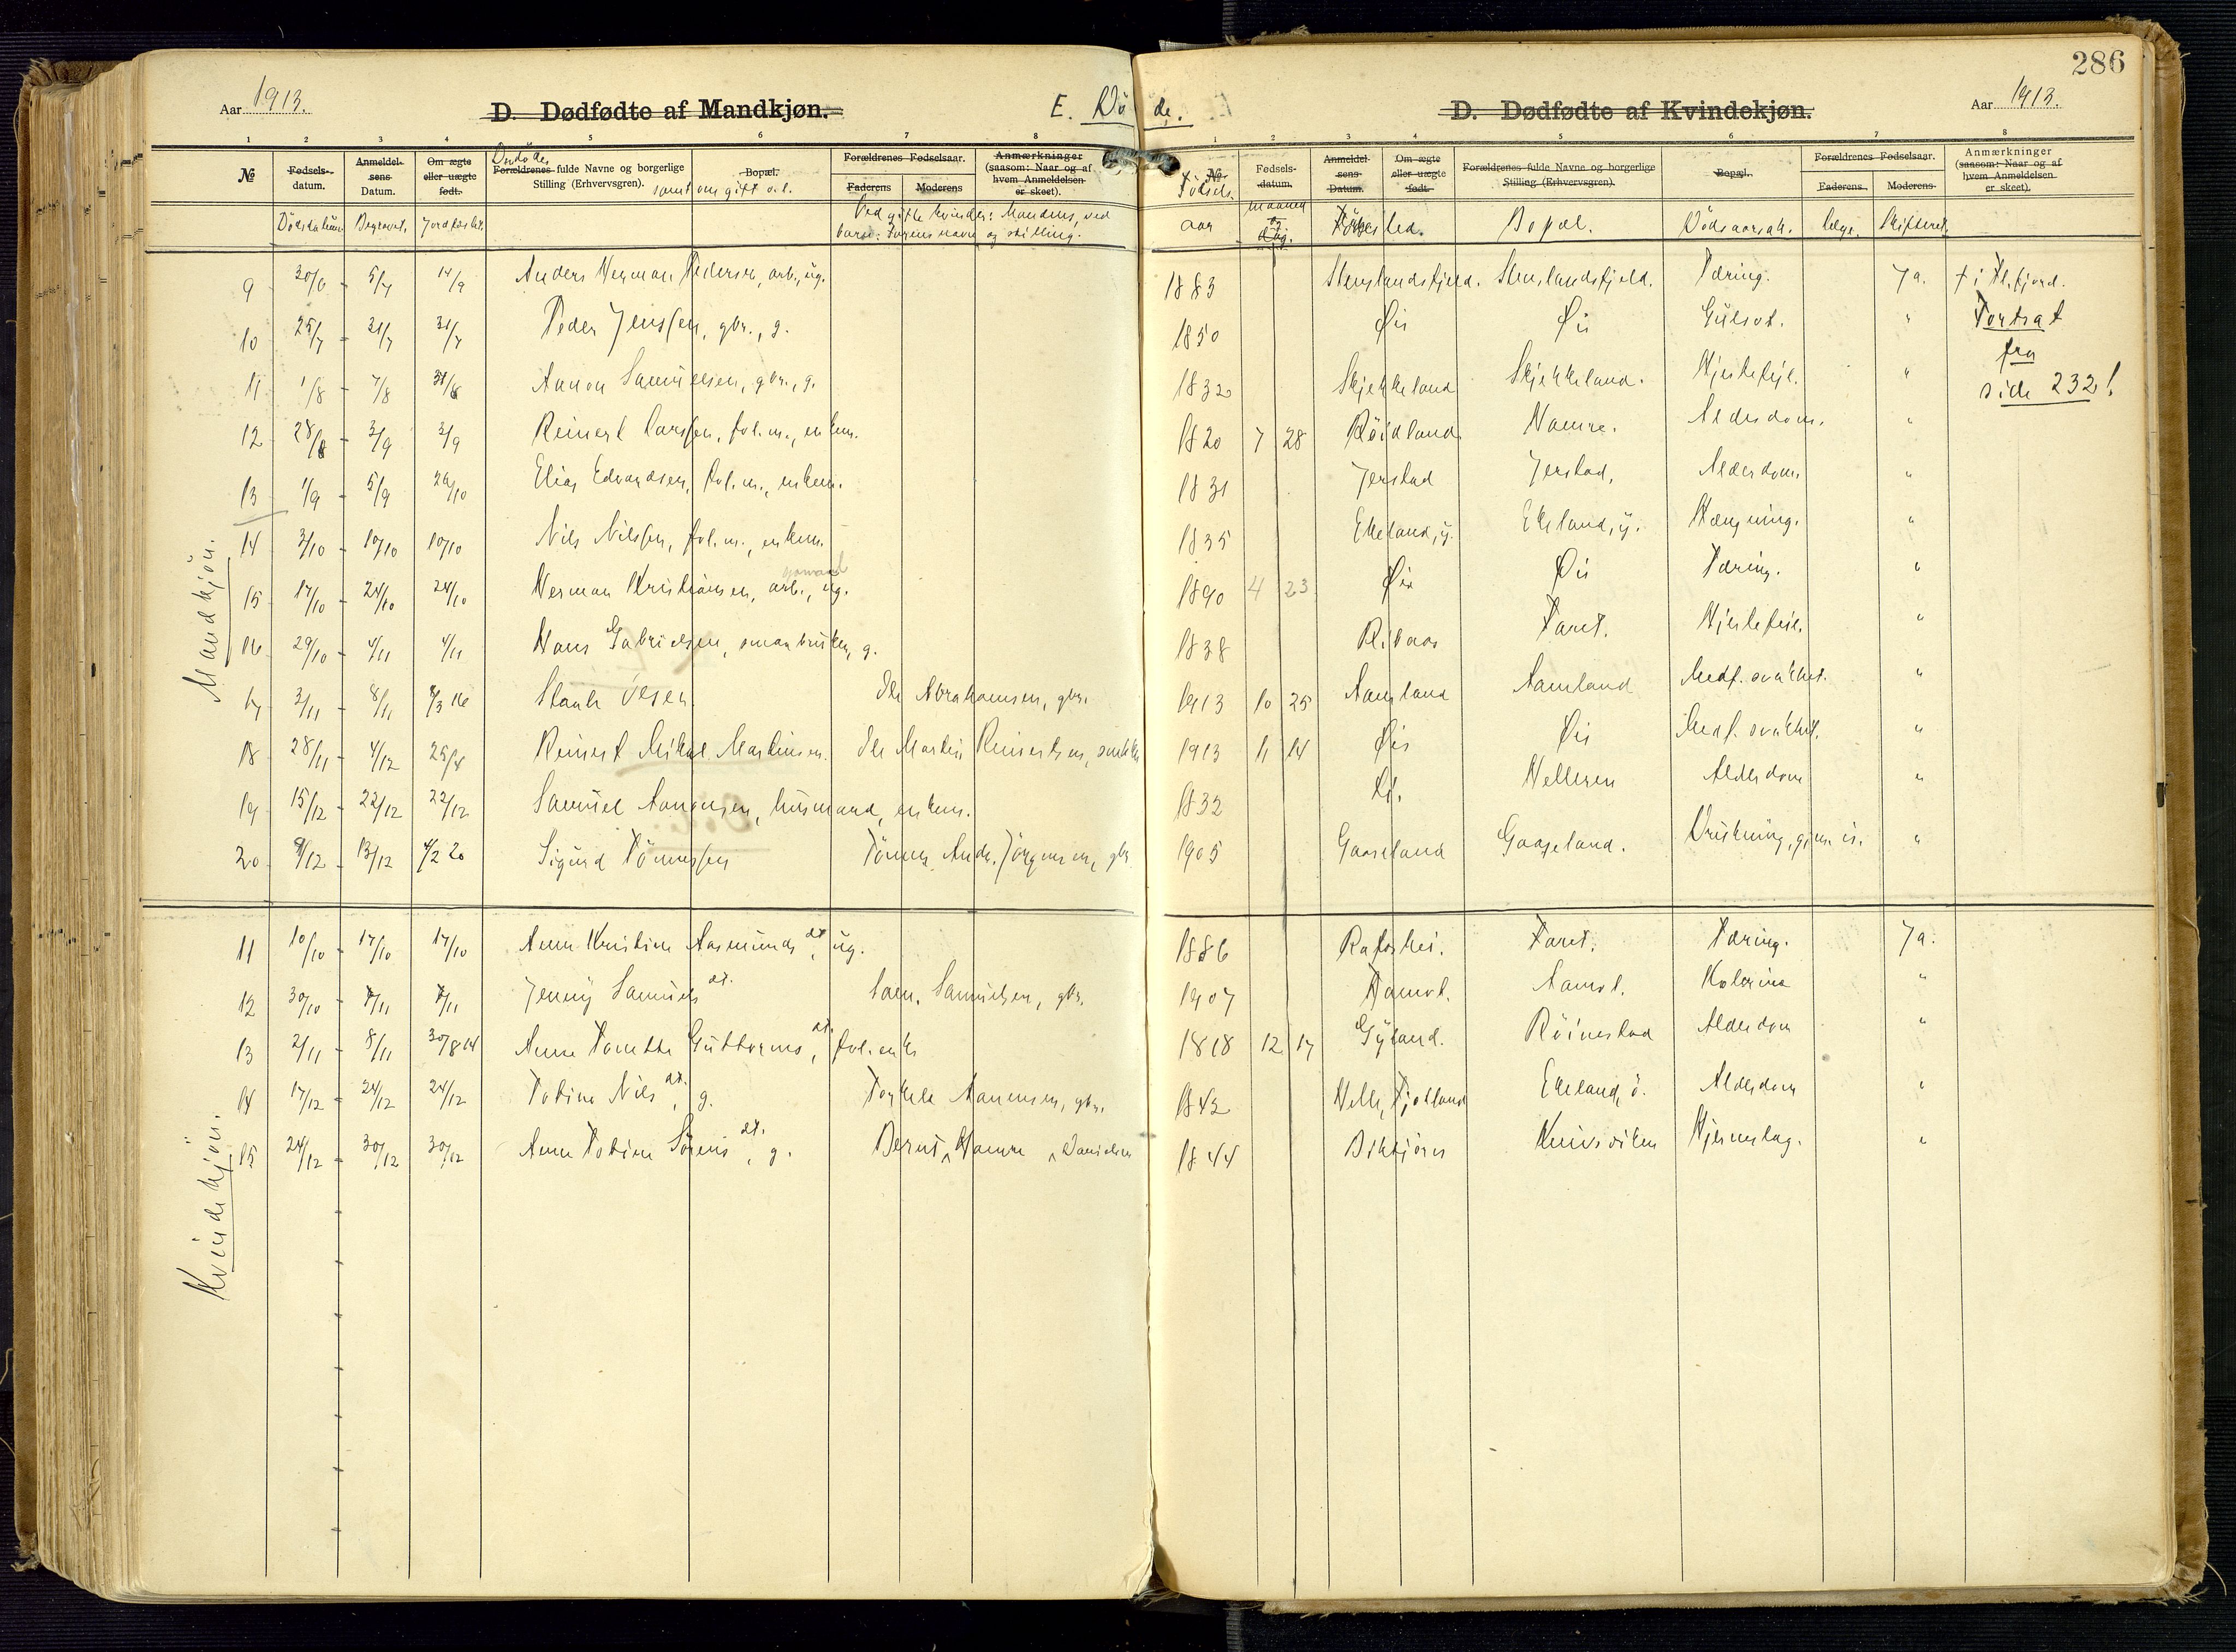 286
Aar 1913.
D. Dødfødte af Mandkjøn.
E. Dö de.
D. Dødfødte af Kvindekjøn.
Aar 1913.
1 2 3 4 5 6 7 8 1 2 3 4 5 6 7 8
№ Fødsels-datum. Anmeldel-sens Datum. Om ægte eller uægte født. Forældrenes fulde Navne og borgerlige Stilling (Erhvervsgren). samt om gift o.l. Bopæl. Forældrenes Fødselsaar. Faderens Moderens Anmærkninger (saasom: Naar og af hvem Anmeldelsen er skeet).
№ Fødsels-datum. Anmeldel-sens Datum. Om ægte eller uægte født. Forældrenes fulde Navne og borgerlige Stilling (Erhvervsgren). Bopæl. Forældrenes Fødselsaar. Faderens. Moderens Anmærkninger (saasom: Naar og af hvem Anmeldelsen er skeet).
Dödsdatum Begravet. Jordfæstet. Ved gifte kvinder: Mandens, ved barn: Farens navn og stilling. Födsels aar maaned og dag. Födested. Bopæl. Dödsaarsak. læge. Skifteret.
Mandkjön.
9 30/6 5/7 14/9 Anders Herman Pedersen, arb., ug. 1883 Stenslandsfjeld. Stenslandsfjeld. Tæring. Ja. † i Fl.fjord.
10 25/7 31/7 31/7 Peder Jenssen, gbr., g. 1850 Øie Øie Gulsot. " Fortsat
11 1/8 7/8 31/8 Aanon Samuelsen, gbr., g. 1832 Skjekkeland Skjekkeland. Hjertefejl. " fra side 232!
12 28/8 3/9 3/9 Reinert Larssen, fol.m., enkem. 1820 7 28 Röidland Hamre. Alderdom. "
13 1/9 5/9 26/10 Elias Edvardsen, fol.m., enkem. 1831 Jerstad Jerstad, Alderdom "
14 3/10 10/10 10/10 Nils Nilssen, fol.m., enkem. 1835 Ekeland, y. Ekeland, y. Hængning. "
15 17/10 24/10 24/10 Herman Kristiansen, arb., ug. 1890 4 23 Øie Øie Tæring. "
16 29/10 4/11 4/11 Hans Gabrielsen, smaabruker, g. 1838 Risaas Faret. Hjertefeil. "
17 3/11 8/11 8/3 16 Stanle Olsen Ole Abrahamsen, gbr. 1913 10 25 Aamland Aamland Medf. svakhet. "
18 28/11 4/12 25/4 Reinert Mikal Martinsen. Ole Martin Reinertsen, 1913 11 14 Øie Øie Medf. svakhet. "
19 15/12 22/12 22/12 Samuel Aanonsen, husmand, enkem. 1832 Helleren Alderdom "
20 9/12 13/12 4/2 20 Sigurd Tönnessen Tönnes Andr. Jörgensen, gbr 1905 Gaaseland Gaaseland. Drukning, gjm. is. "
Kvindekjön.
11 10/10 17/10 17/10 Anne Kristine Aasmunds dt, ug. 1886 Rafoshei. Faret. Tæring. Ja.
12 30/10 7/11 7/11 Jenny Samuels dt. Sam. Samuelsen, gbr. 1907 Aamot. Aamot. Kolerine "
13 2/11 8/11 30/8 14 Anne Tomette Guttorms dt., fol.enke 1818 12 17 Gyland. Röinestad Alderdom "
14 17/12 24/12 24/12 Tobine Nils dt., g. Torkele Aanensen, gbr. 1842 Helle, Fjotland Ekeland, ö. Alderdom "
15 24/12 30/12 30/12 Anne Tobine Sörens dt., g. Bernt Hamre Danielsen 1844 Birkjörn Kniksviken Hjerneslag. "